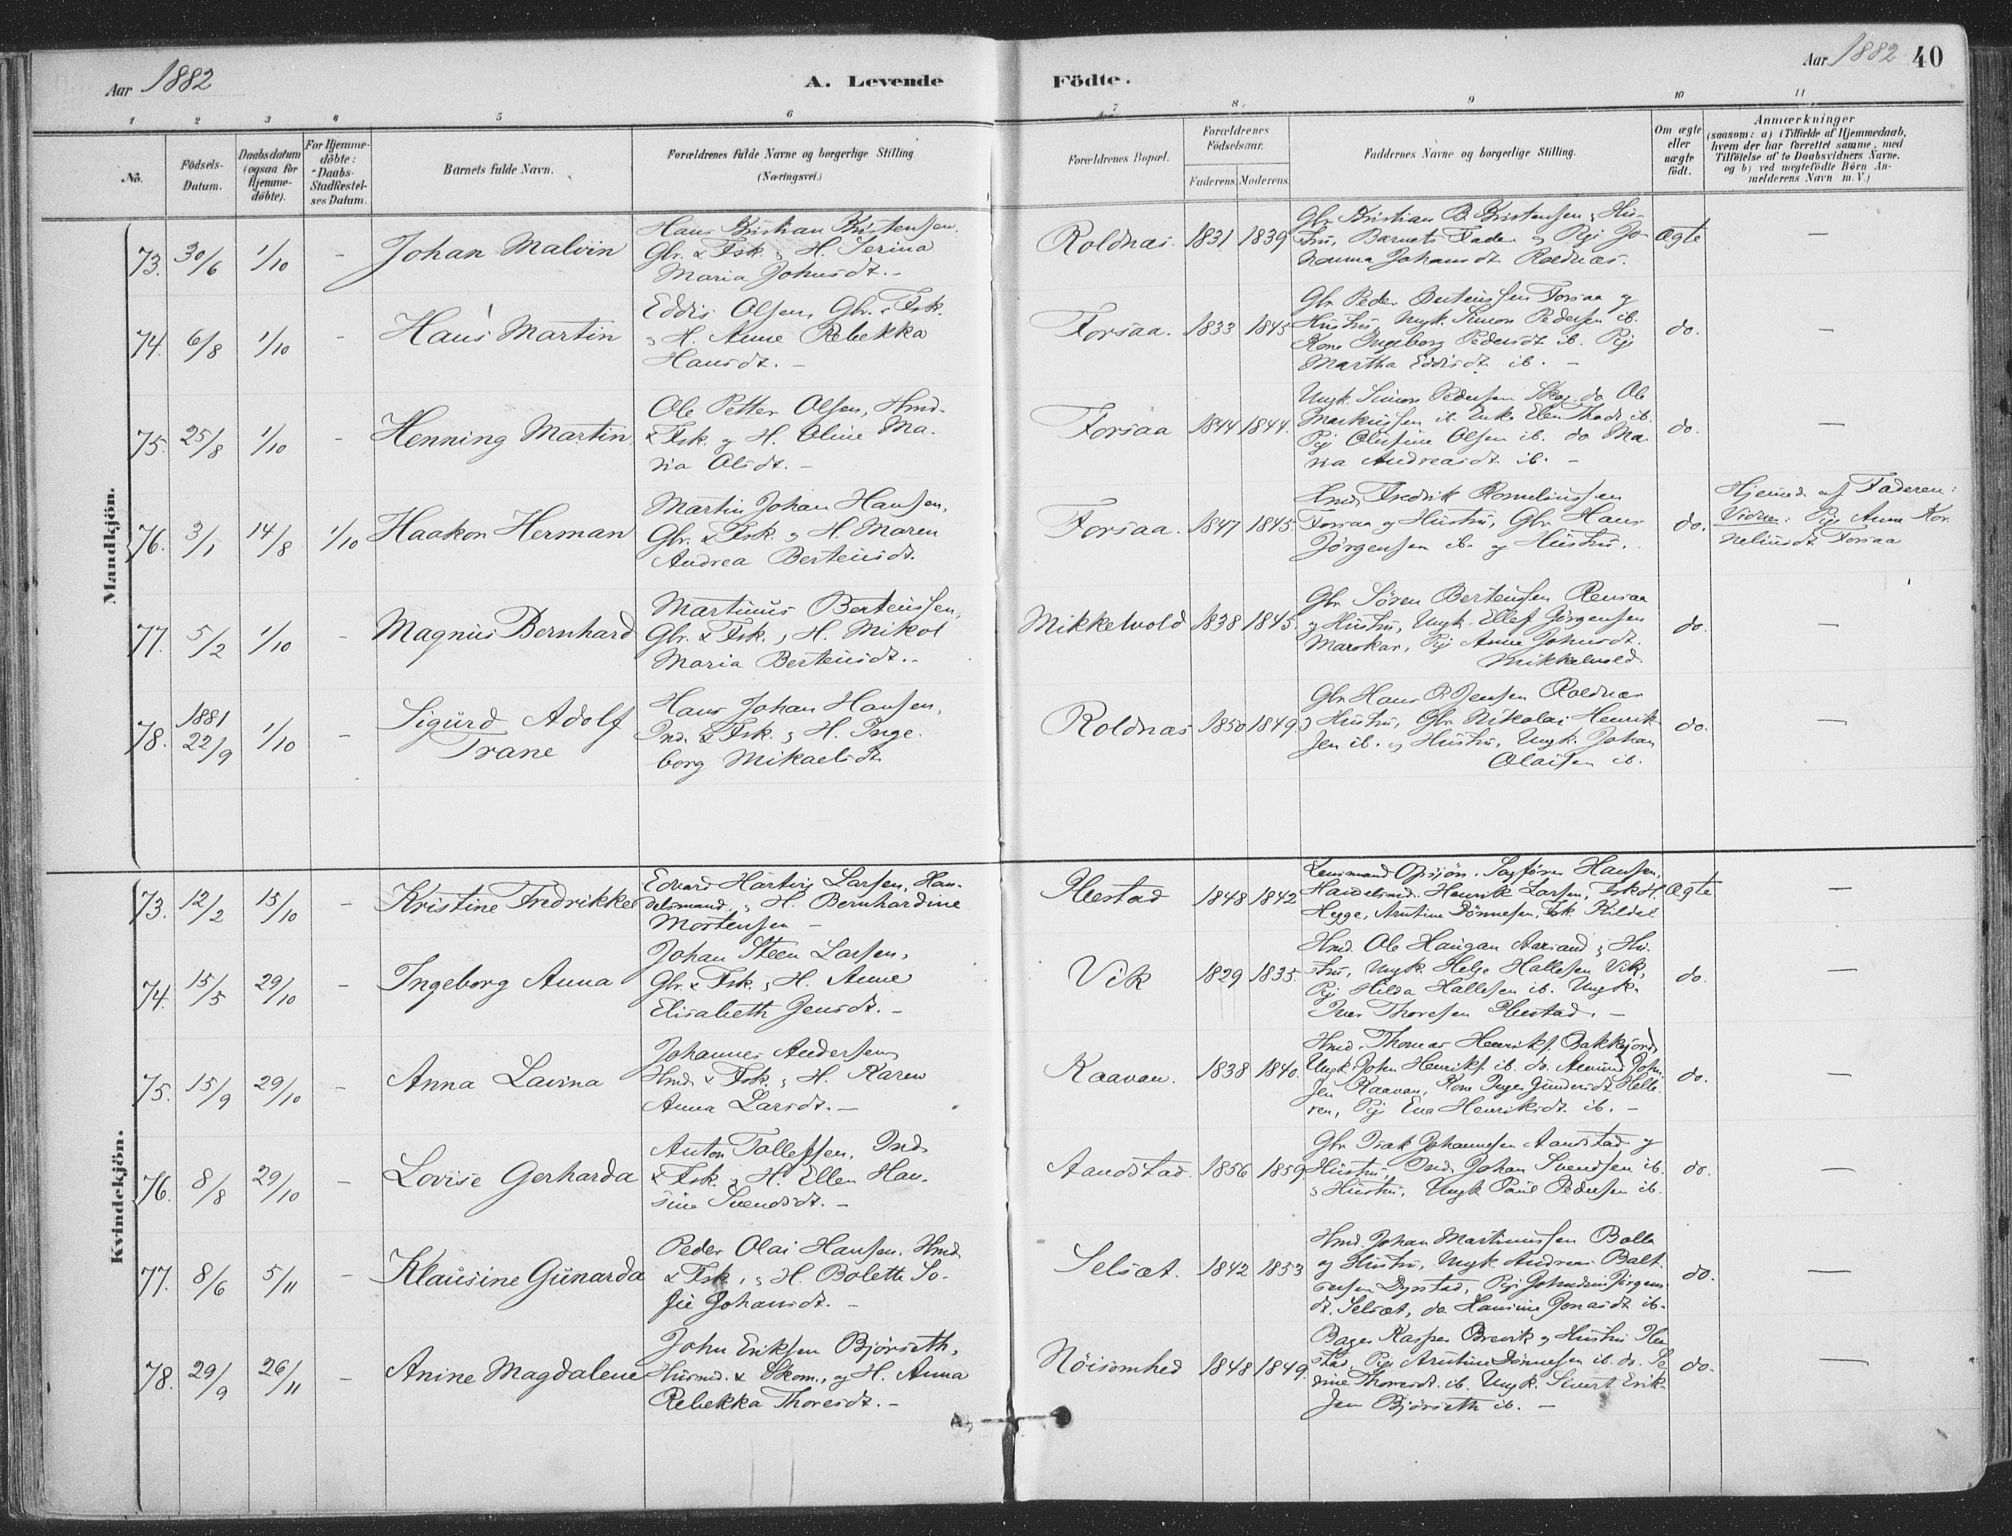 Aar 1882
A. Levende Födte.
Aar 1882 40
1 2 3 4 5 6 7 8 9 10 11
No.
Födsels-Datum.
Daabsdatum (ogsaa for Hjemme-döbte).
For Hjemme-döbte: Daabs-Stadfæstel-ses Datum.
Barnets fulde Navn.
Forældrenes fulde Navne og borgerlige Stilling (Næringsvei.)
Forældrenes Bopæl.
Forældrenes Födselsaar.
Faderens. Moderens.
Faddernes Navne og borgerlige Stilling.
Om ægte eller uægte födt.
Anmærkninger
(saasom: a) i Tilfælde af Hjemmedaab,
hvem der har forrettet samme, med
Tilföielse af to Daabsvidners Navne,
og b) ved uægtefödte Börn An-
melderens Navn m. V.)
Mandkjön.
73. 30/6 1/10 - Johan Malvin
Hans Kristian Kristensen,
Gbr. & Fsk. & H. Serina
Maria Johnsdt. -
Roldnæs. 1831 1839
Gbr. Kristian B. Kristensen & Hu-
stru, Barnets Fader og Pige Jo-
hanna Johansdt Roldnæs.
Ægte —
74. 6/8 1/10 - Hans Martin
Eddis Olsen, Gbr. & Fsk.
& H. Anne Rebekka
Hansdt. -
Forsaa. 1833 1845
Gbr. Peder Bertenssen Forsaa og
Hustru, Ungk. Simon Pedersen ib.
Kone Ingeborg Pedersdt ib. Pige
Martha Eddisdt ib. -
do. —
75. 25/8 1/10 - Henning Martin
Ole Petter Olsen, Hmd.
& Fsk. og H. Oline Ma-
ria Olsdt. -
Forsaa 1844 1844.
Ungk. Simon Pedersen Skog. do Ole
Markussen ib. Enke Elen Thodr ib.
Pige Olufine Olsen ib. do Ma-
ria Andreasdt ib. -
do. —
76. 3/1 14/8 1/10 Haakon Herman
Martin Johan Hansen,
Gbr. & Fsk. & H. Maren
Andrea Bertensdt.
Forsaa. 1847 1845.
Hmd. Fredrik Korneliussen
Forsaa og Hustru, Gbr. Hans
Jørgensen ib. og Hustru.
do.
Hjemed. af Faderen:
Vidne: Pige Anna Kor-
neliusdt Forsaa
77. 5/2 1/10 - Magnus Bernhard
Martinus Bertenssen,
Gbr. & Fsk. & H. Mikol
Maria Bertensdt.
Mikkelvold 1838 1845.
Gbr. Søren Bertenssen Rensaa
og Hustru, Ungk. Ellef Jørgensen
Marskar, Pige Anne Johnsdt.
Mikkelvold.
do. —
78. 1881 22/9 1/10 - Sigurd Adolf Trane
Hans Johan Hansen,
Ind. & Fsk. & H. Inge-
borg Mikaelsdt
Roldnæs 1850 1849
Gbr. Hans P. Jensen Roldnæs
& Hustru, Gbr. Nikolai Henrik-
sen ib. og Hustru, Ungk. Johan
Olaisen ib.
do. —
Kvindekjön.
73. 12/2 15/10 - Kristine Fredrikke
Edvard Hartvig Larsen, Han-
delsmand, & H. Bernhardine
Mortensen -
Hestad 1848 1842
Lensmand Opsjøn. Sagfører Hansen,
Handelsmd. Henrik Larsen, Frk. H.
Hegge, Arntine Dønnesen, Frk. Kildal
Ægte —
74. 15/5 29/10 - Ingeborg Anna
Johan Steen Larsen,
Gbr. & Fsk. & H. Anne
Elisabeth Jensdt. -
Vik 1829 1835.
Hmd. Ole Haugan Aarsand & Hu-
stru, Ungk. Helge Hallesen Vik,
Pige Hilda Hallesen ib. Ungk.
Iver Thoresen Hestad. -
do. —
75. 15/9 29/10 - Anna Lavina
Johannes Andersen
Hmd. & Fsk. & H. Karen
Anna Larsdt. -
Kaavan. 1838 1840.
Hmd. Thomas Henriks. Bakkejord,
Ungk. John Henriks. ib. do. Amund John-
sen Kaavan, Kone Inger Gundersdt Helle-
ren, Pige Eva Henriksdt ib. -
do. —
76. 8/8 29/10 - Lovise Gerharda
Anton Tollefsen, Ind.
& Fsk. & H. Ellen Han-
sine Svendsdt. -
Aandstad 1856 1859.
Gbr. Isak Johannesen Aandstad og
Hustru, Ind. Johan Svendsen ib.
& Hustru, Ungk Paul Pedersen ib.
do. —
77. 8/6 5/11 - Klausine Gunarda
Peder Olai Hansen, Hmd.
& Fsk., & H. Bolette So-
fie Johansdt. -
Selsæt. 1842 1853
Hmd. Johan Martinussen Bolla
og Hustru, Ungk Andreas Balt-
sersen Dyrstad, Pige Johndine Jørgens-
dt. Selsæt, do Hansine Jonasdt ib.
do. —
78. 29/9 26/11 - Anine Magdalene
John Eriksen Bjørseth,
Husmd. & Skom., og H. Anna
Rebekka Thoresdt. -
Nöisomhed 1848 1849.
Bager Kasper Brevik & Hustru He-
stad, Pige Arntine Dønnesen ib. do. Se-
dine Thoresdt. ib. Ungk. Sivert Erik-
sen Bjørseth ib. -
do. —